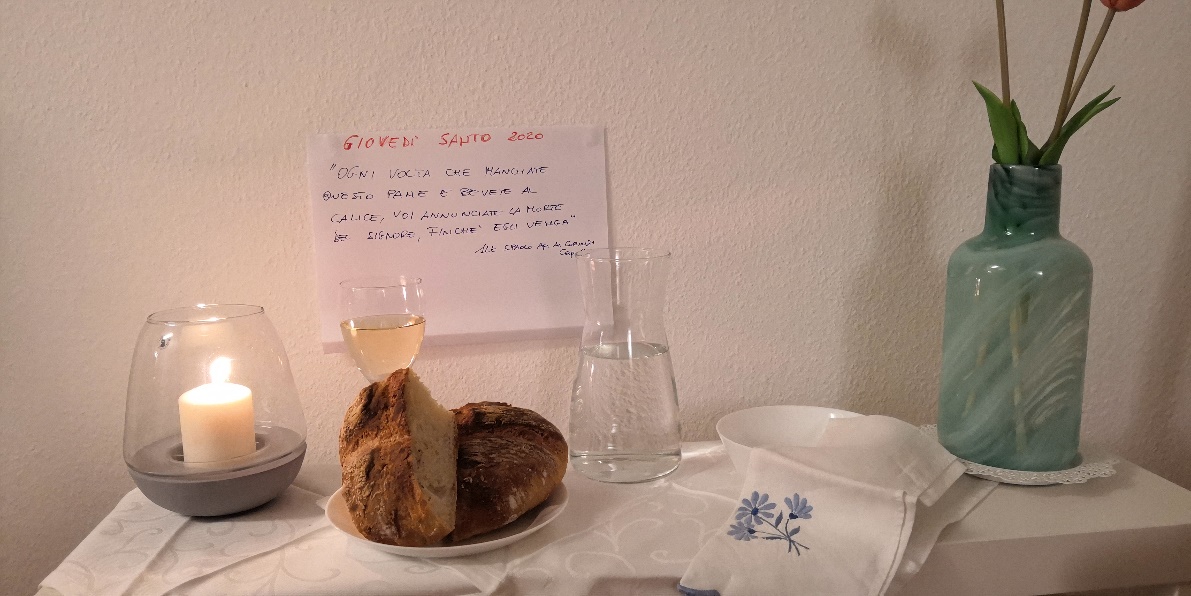 GIOVEDI' SANTO 2020
"OGNI VOLTA CHE MANGIATE
QUESTO PANE E BEVETE AL
CALICE, VOI ANNUNCIATE LA MORTE
DEL SIGNORE, FINCHE' EGLI VENGA"
S. PAOLO AP. AI